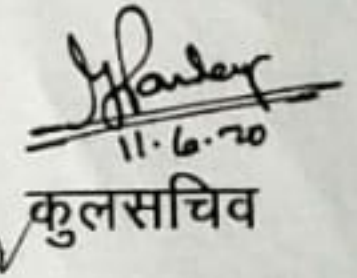 11.6.20
कुलसचिव